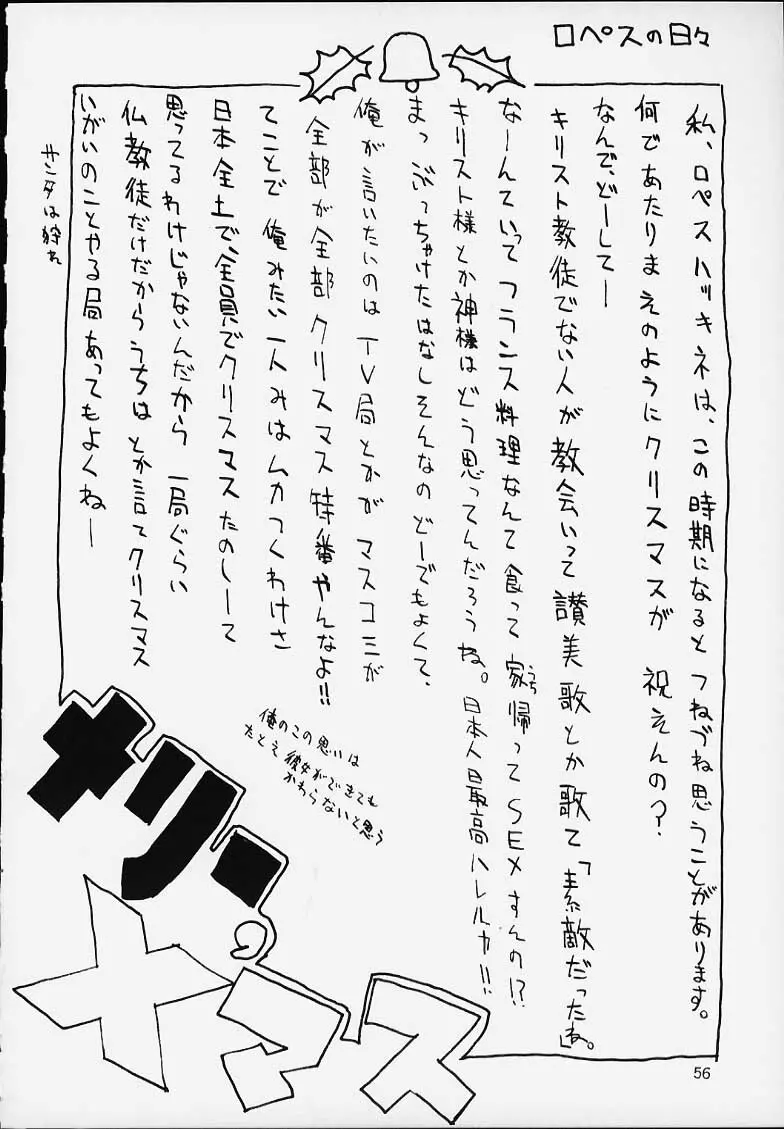 ロペスの日々
私、ロペスハッキネは、この時期になるとつねづね思うことがあります。
何であたりまえのようにクリスマスが 祝えんの?
なんで、どーしてー
キリスト教徒でない人が教会いって讃美歌とか歌て「素敵だったね。」
なーんていってフランス料理なんて食って家帰ってSEXすんの!?
うち
キリスト様とか神様はどう思ってんだろうね。日本人最高ハレルヤ!!
まっぶっちゃけたはなしそんなのどーでもよくて、
俺が言いたいのはTV局とかがマスコミが
全部が全部クリスマス特番やんなよ!!
てことで俺みたい一人みはムカつくわけさ
日本全土で、全員でクリスマスたのしーて
思ってるわけじゃないんだから 一局ぐらい
仏教徒だけだからうちはとか言てクリスマス
いがいのことやる局あってもよくねー
サンタは狩れ
俺のこの思いは
たとえ彼女ができても
かわらないと思う
メリー。
×マス
56